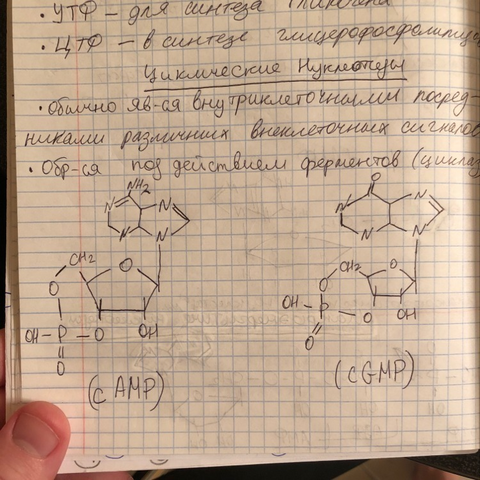 • УТФ – для синтеза гликогена
• ЦТФ – в синтезе глицерофосфолипидов
Циклические Нуклеотиды
• Обычно яв-ся внутриклеточными посред-
никами различных внеклеточных сигналов
• Обр-ся под действием ферментов (циклаз
NH2
N
N
N
N
CH2
O
O
OH – P – O
OH
O
(cAMP)
O
N
N
N
N
CH2
O
O
OH – P
O
OH
O
(cGMP)